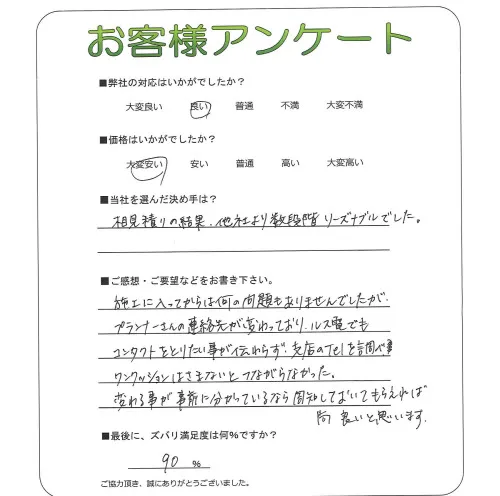 お客様アンケート
■弊社の対応はいかがでしたか?
大変良い 良い 普通 不満 大変不満
■価格はいかがでしたか?
大変安い 安い 普通 高い 大変高い
■当社を選んだ決め手は?
相見積りの結果、他社より数段階リーズナブルでした。
■ご感想・ご要望などをお書き下さい。
施工に入ってからは何の問題もありませんでしたが、
プランナーさんの連絡先が変わっており、ルス電でも
コンタクトをとりたい事が伝わらず、支店のTelを調べ
ワンクッションはさまないとつながらなかった。
変わる事が事前に分かっているなら周知しておいてもらえれば
尚 良いと思います。
■最後に、ズバリ満足度は何%ですか?
90 %
ご協力頂き、誠にありがとうございました。